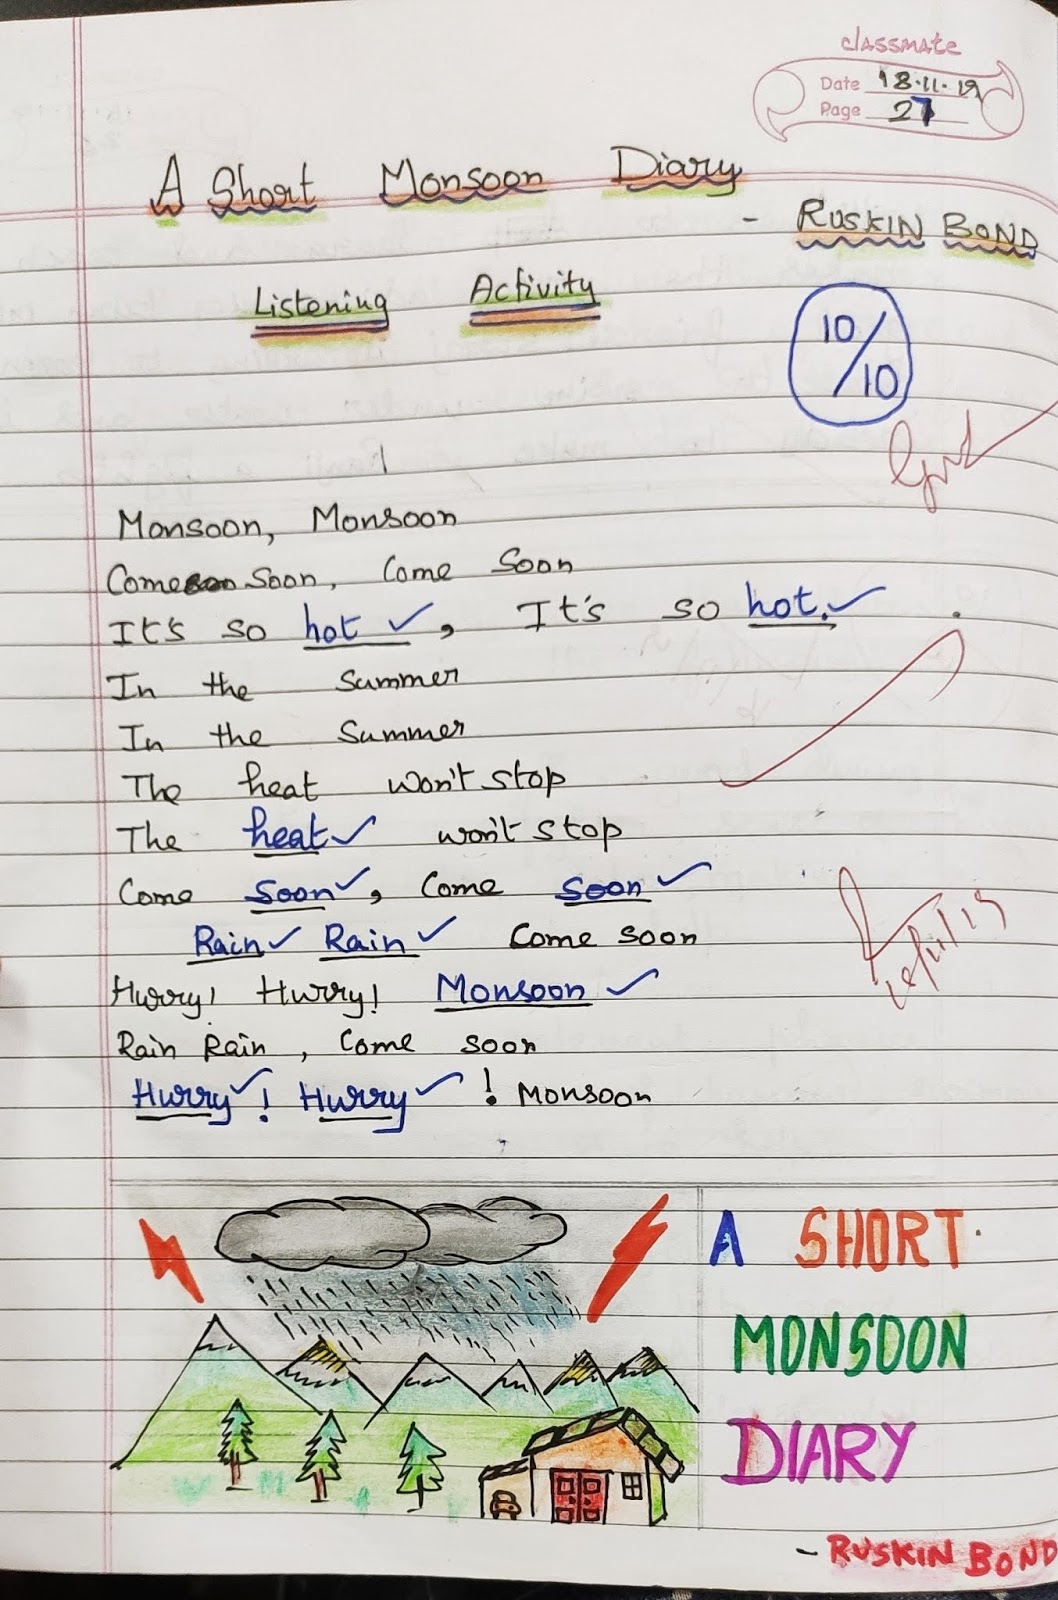 classmate
Date 18.11.19
Page 27
A Short Monsoon Diary
- RUSKIN BOND
Listening Activity
10/10
Monsoon, Monsoon
Come soon, Come Soon
It's so hot ✓, It's so hot. ✓
In the Summer
In the Summer
The heat won't stop
The heat ✓ won't stop
Come Soon ✓, Come Soon ✓
Rain ✓ Rain ✓ Come soon
Hurry! Hurry! Monsoon ✓
Rain Rain, Come soon
Hurry ✓! Hurry ✓! Monsoon
A SHORT
MONSOON
DIARY
- RUSKIN BOND